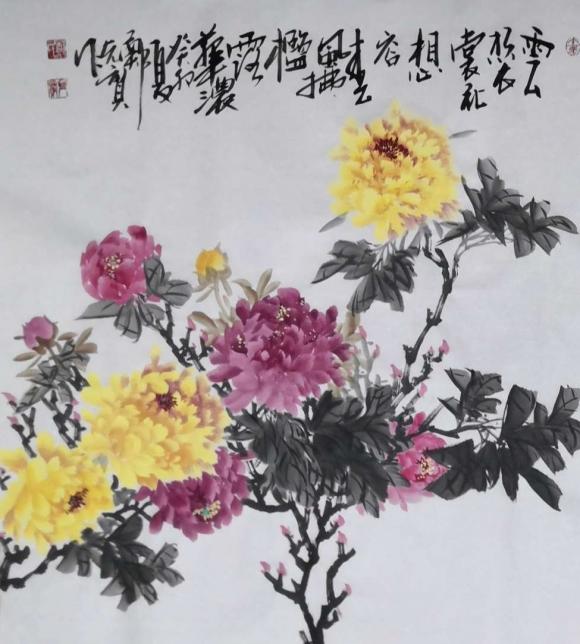 雲
想衣
裳花
想
容
春
風拂
檻
露
華濃
癸卯
夏
鄭
作